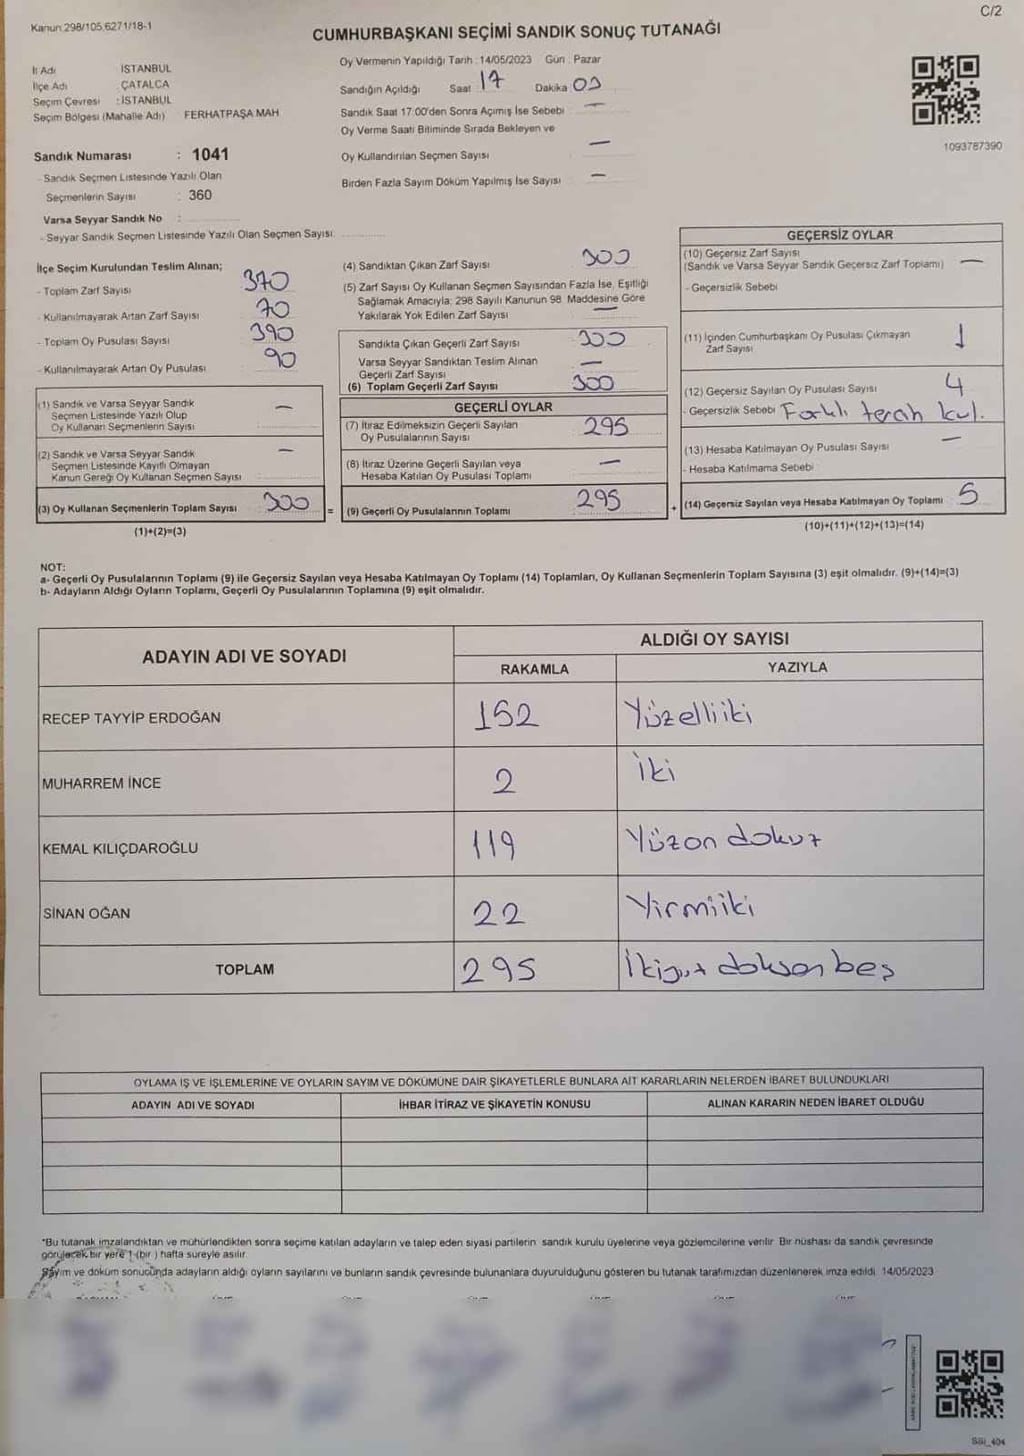 Kanun 298/105,6271/18-1
C/2
CUMHURBAŞKANI SEÇİMİ SANDIK SONUÇ TUTANAĞI
İl Adı İSTANBUL
İlçe Adı ÇATALCA
Seçim Çevresi : İSTANBUL
Seçim Bölgesi (Mahalle Adı) FERHATPAŞA MAH
Sandık Numarası : 1041
- Sandık Seçmen Listesinde Yazılı Olan
Seçmenlerin Sayısı : 360
Varsa Seyyar Sandık No :
- Seyyar Sandık Seçmen Listesinde Yazılı Olan Seçmen Sayısı:
Oy Vermenin Yapıldığı Tarih : 14/05/2023 Gün : Pazar
Sandığın Açıldığı Saat 17 Dakika 03
Sandık Saat 17:00'den Sonra Açımış İse Sebebi —
Oy Verme Saati Bitiminde Sırada Bekleyen ve
Oy Kullandırılan Seçmen Sayısı —
Birden Fazla Sayım Döküm Yapılmış İse Sayısı —
1093787390
İlçe Seçim Kurulundan Teslim Alınan;
- Toplam Zarf Sayısı 370
- Kullanılmayarak Artan Zarf Sayısı 70
- Toplam Oy Pusulası Sayısı 390
- Kullanılmayarak Artan Oy Pusulası 90
(1) Sandık ve Varsa Seyyar Sandık
Seçmen Listesinde Yazılı Olup
Oy Kullanan Seçmenlerin Sayısı —
(2) Sandık ve Varsa Seyyar Sandık
Seçmen Listesinde Kayıtlı Olmayan
Kanun Gereği Oy Kullanan Seçmen Sayısı —
(3) Oy Kullanan Seçmenlerin Toplam Sayısı 300 =
(1)+(2)=(3)
(4) Sandıktan Çıkan Zarf Sayısı 300
(5) Zarf Sayısı Oy Kullanan Seçmen Sayısından Fazla İse, Eşitliği
Sağlamak Amacıyla; 298 Sayılı Kanunun 98. Maddesine Göre
Yakılarak Yok Edilen Zarf Sayısı —
Sandıkta Çıkan Geçerli Zarf Sayısı 300
Varsa Seyyar Sandıktan Teslim Alınan
Geçerli Zarf Sayısı —
(6) Toplam Geçerli Zarf Sayısı 300
GEÇERLİ OYLAR
(7) İtiraz Edilmeksizin Geçerli Sayılan
Oy Pusulalarının Sayısı 295
(8) İtiraz Üzerine Geçerli Sayılan veya
Hesaba Katılan Oy Pusulası Toplamı —
(9) Geçerli Oy Pusulalarının Toplamı 295 +
GEÇERSİZ OYLAR
(10) Geçersiz Zarf Sayısı
(Sandık ve Varsa Seyyar Sandık Geçersiz Zarf Toplamı) —
- Geçersizlik Sebebi
(11) İçinden Cumhurbaşkanı Oy Pusulası Çıkmayan
Zarf Sayısı 1
(12) Geçersiz Sayılan Oy Pusulası Sayısı 4
- Geçersizlik Sebebi Farklı tercih kul.
(13) Hesaba Katılmayan Oy Pusulası Sayısı —
- Hesaba Katılmama Sebebi
(14) Geçersiz Sayılan veya Hesaba Katılmayan Oy Toplamı 5
(10)+(11)+(12)+(13)=(14)
NOT:
a- Geçerli Oy Pusulalarının Toplamı (9) ile Geçersiz Sayılan veya Hesaba Katılmayan Oy Toplamı (14) Toplamları, Oy Kullanan Seçmenlerin Toplam Sayısına (3) eşit olmalıdır. (9)+(14)=(3)
b- Adayların Aldığı Oyların Toplamı, Geçerli Oy Pusulalarının Toplamına (9) eşit olmalıdır.
ADAYIN ADI VE SOYADI
ALDIĞI OY SAYISI
RAKAMLA YAZIYLA
RECEP TAYYİP ERDOĞAN 152 Yüzelliiki
MUHARREM İNCE 2 İki
KEMAL KILIÇDAROĞLU 119 Yüzon dokuz
SİNAN OĞAN 22 Yirmiiki
TOPLAM 295 İkiyüz doksan beş
OYLAMA İŞ VE İŞLEMLERİNE VE OYLARIN SAYIM VE DÖKÜMÜNE DAİR ŞİKAYETLERLE BUNLARA AİT KARARLARIN NELERDEN İBARET BULUNDUKLARI
ADAYIN ADI VE SOYADI İHBAR İTİRAZ VE ŞİKAYETİN KONUSU ALINAN KARARIN NEDEN İBARET OLDUĞU
*Bu tutanak imzalandıktan ve mühürlendikten sonra seçime katılan adayların ve talep eden siyasi partilerin sandık kurulu üyelerine veya gözlemcilerine verilir. Bir nüshası da sandık çevresinde
görülecek bir yere 1 (bir ) hafta süreyle asılır.
Sayım ve döküm sonucunda adayların aldığı oyların sayılarını ve bunların sandık çevresinde bulunanlara duyurulduğunu gösteren bu tutanak tarafımızdan düzenlenerek imza edildi. 14/05/2023